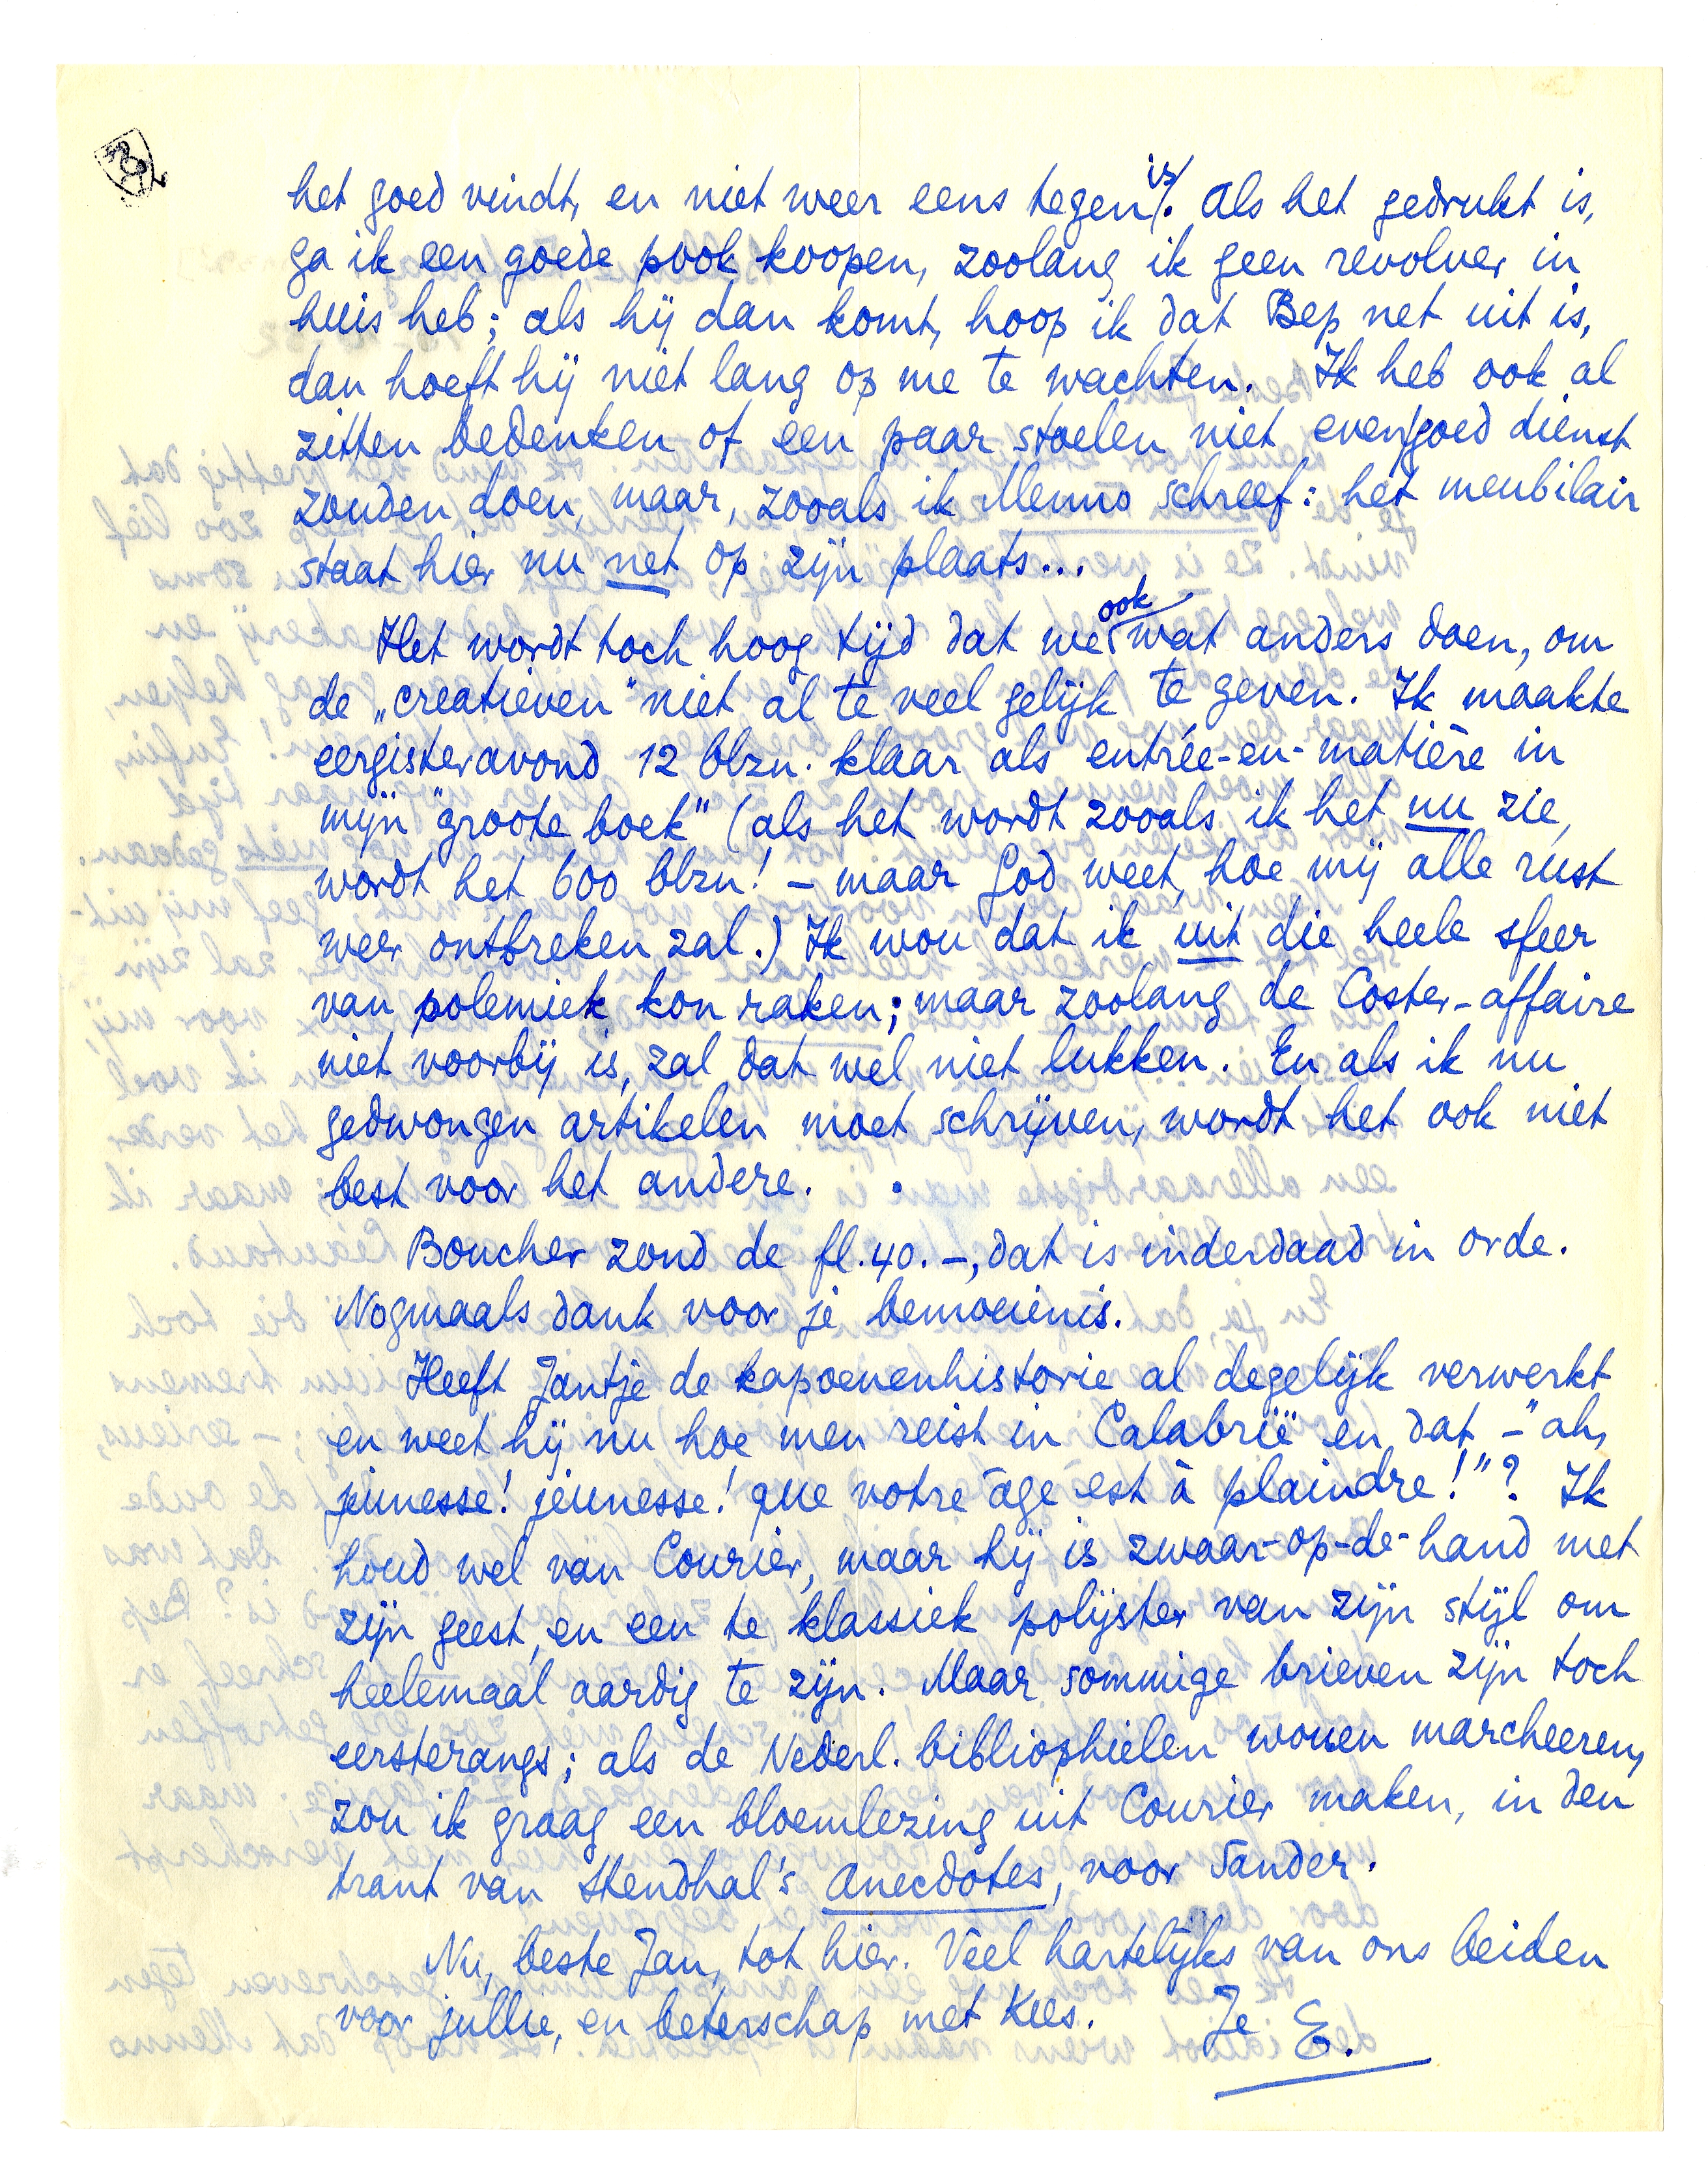 het goed vindt, en niet weer eens tegen is. Als het gedrukt is,
ga ik een goede pook koopen, zoolang ik geen revolver in
huis heb; als hij dan komt, hoop ik dat Bep net uit is,
dan hoeft hij niet lang op me te wachten. Ik heb ook al
zitten bedenken of een paar stoelen niet evengoed dienst
zouden doen, maar, zooals ik Menno schreef: het meubilair
staat hier nu net op zijn plaats...
Het wordt toch hoog tijd dat we ook wat anders doen, om
de „creatieven" niet al te veel gelijk te geven. Ik maakte
eergisteravond 12 blzn. klaar als entrée-en-matière in
mijn "groote boek" (als het wordt zooals ik het nu zie,
wordt het 600 blzn! – maar God weet, hoe mij alle rust
weer ontbreken zal.) Ik wou dat ik uit die heele sfeer
van polemiek kon raken; maar zoolang de Coster-affaire
niet voorbij is, zal dat wel niet lukken. En als ik nu
gedwongen artikelen moet schrijven, wordt het ook niet
best voor het andere.
Boucher zond de fl. 40.–, dat is inderdaad in orde.
Nogmaals dank voor je bemoeienis.
Heeft Jantje de kapoenenhistorie al degelijk verwerkt
en weet hij nu hoe men reist in Calabrië en dat – "ah,
jeunesse! jeunesse! que votre âge est à plaindre!"? Ik
houd wel van Courier, maar hij is zwaar-op-de-hand met
zijn geest, en een te klassiek polijster van zijn stijl om
heelemaal aardig te zijn. Maar sommige brieven zijn toch
eersterangs; als de Nederl. bibliophielen wouen marcheeren,
zou ik graag een bloemlezing uit Courier maken, in den
trant van Stendhal's Anecdotes, voor Sander.
Nu, beste Jan, tot hier. Veel hartelijks van ons beiden
voor jullie, en beterschap met Kees. Je E.